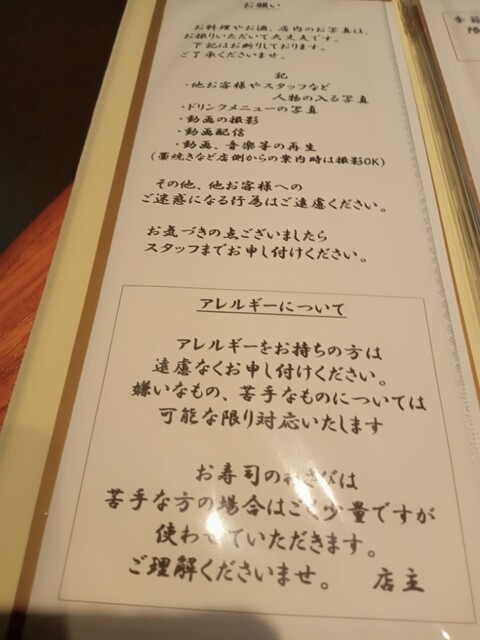 お願い
お料理やお酒、店内のお写真は、
お撮りいただいて大丈夫です。
下記はお断りしております。
ご了承くださいませ。
記
・他お客様やスタッフなど
人物の入る写真
・ドリンクメニューの写真
・動画の撮影
・動画配信
・動画、音楽等の再生
(藁焼きなど店側からの案内時は撮影OK)
その他、他お客様への
ご迷惑になる行為はご遠慮ください。
お気づきの点ございましたら
スタッフまでお申し付けください。
アレルギーについて
アレルギーをお持ちの方は
遠慮なくお申し付けください。
嫌いなもの、苦手なものについては
可能な限り対応いたします
お寿司のわさびは
苦手な方の場合はごく少量ですが
使わせていただきます。
ご理解くださいませ。 店主
季節
限